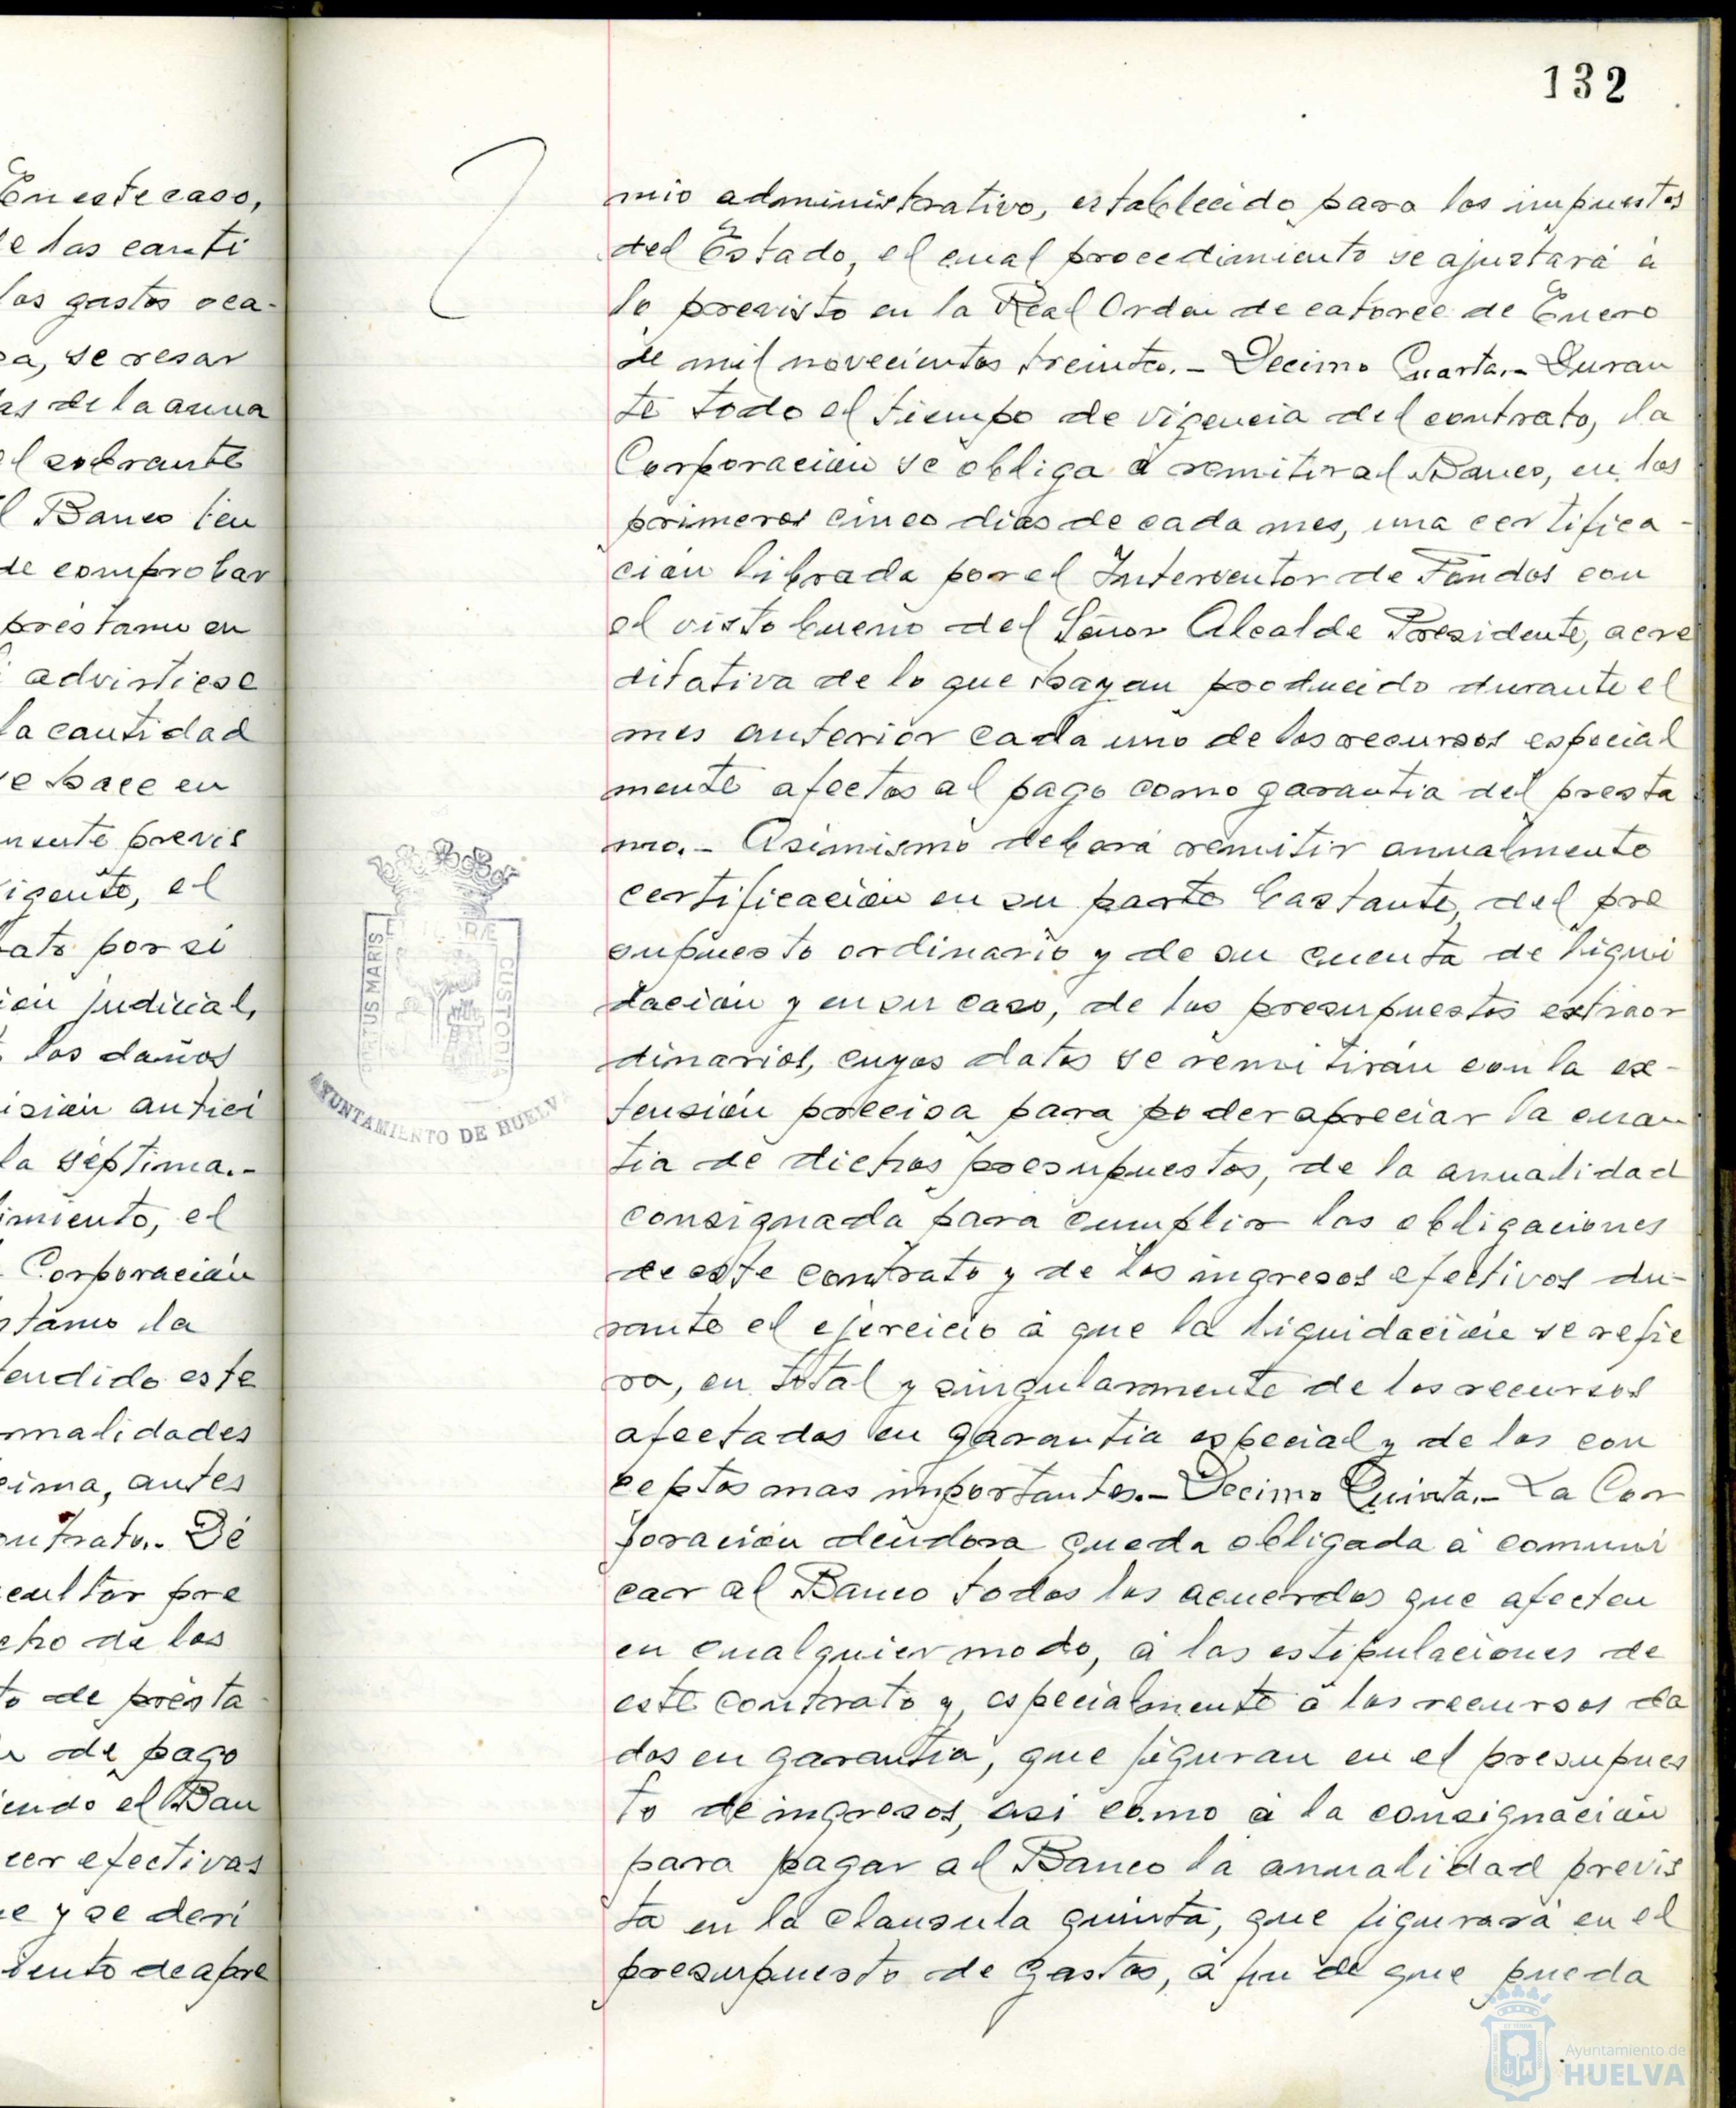 132
En este caso,
e las canti
los gastos oca-
a, se resar
as de la anua
el sobrante
l Banco ten
de comprobar
préstamo en
advirtiese
la cantidad
e hace en
nsute previs
igente, el
ato por si
ión judicial,
los daños
isión antici
la séptima.-
imiento, el
Corporación
stamo la
tendido este
malidades
cima, antes
ontrato.- Dé
cultar pre
cho de los
to de présta
de pago
iendo el Ban
cer efectivas
e y se deri
iento de apre
mio administrativo, establecido para los impuestos
del Estado, el cual procedimiento se ajustará á
lo previsto en la Real Orden de catorce de Enero
de mil novecientos treinta.- Decimo Cuarta.- Duran
te todo el tiempo de vigencia del contrato, la
Corporación se obliga á remitir al Banco, en los
primeros cinco dias de cada mes, una certifica-
ción librada por el Interventor de Fondos con
el visto bueno del Señor Alcalde Presidente, acre
ditativa de lo que hayan producido durante el
mes anterior cada uno de los recursos especial
mente afectos al pago como garantia del presta
mo.- Asimismo deberá remitir anualmente
certificación en su parte bastante, del pre
supuesto ordinario y de su cuenta de liqui
dación y en su caso, de los presupuestos extraor
dinarios, cuyos datos se remitirán con la ex-
tensión precisa para poder apreciar la cuan
tia de dichos presupuestos, de la anualidad
consignada para cumplir las obligaciones
de este contrato y de los ingresos efectivos du-
rante el ejercicio á que la liquidación se refie
ra, en total y singularmente de los recursos
afectados en garantia especial y de los con
ceptos mas importantes.- Decimo Quinta.- La Cor
poración deudora queda obligada á comuni
car al Banco todos los acuerdos que afecten
en cualquier modo, á las estipulaciones de
este contrato y, especialmente á los recursos da
dos en garantia, que figuran en el presupues
to de ingresos, asi como á la consignación
para pagar al Banco la anualidad previs
ta en la clausula quinta, que figurará en el
presupuesto de gastos, á fin de que pueda
PORTUS MARIS
ET TERRÆ
CUSTODIA
AYUNTAMIENTO DE HUELVA
Ayuntamiento de
HUELVA